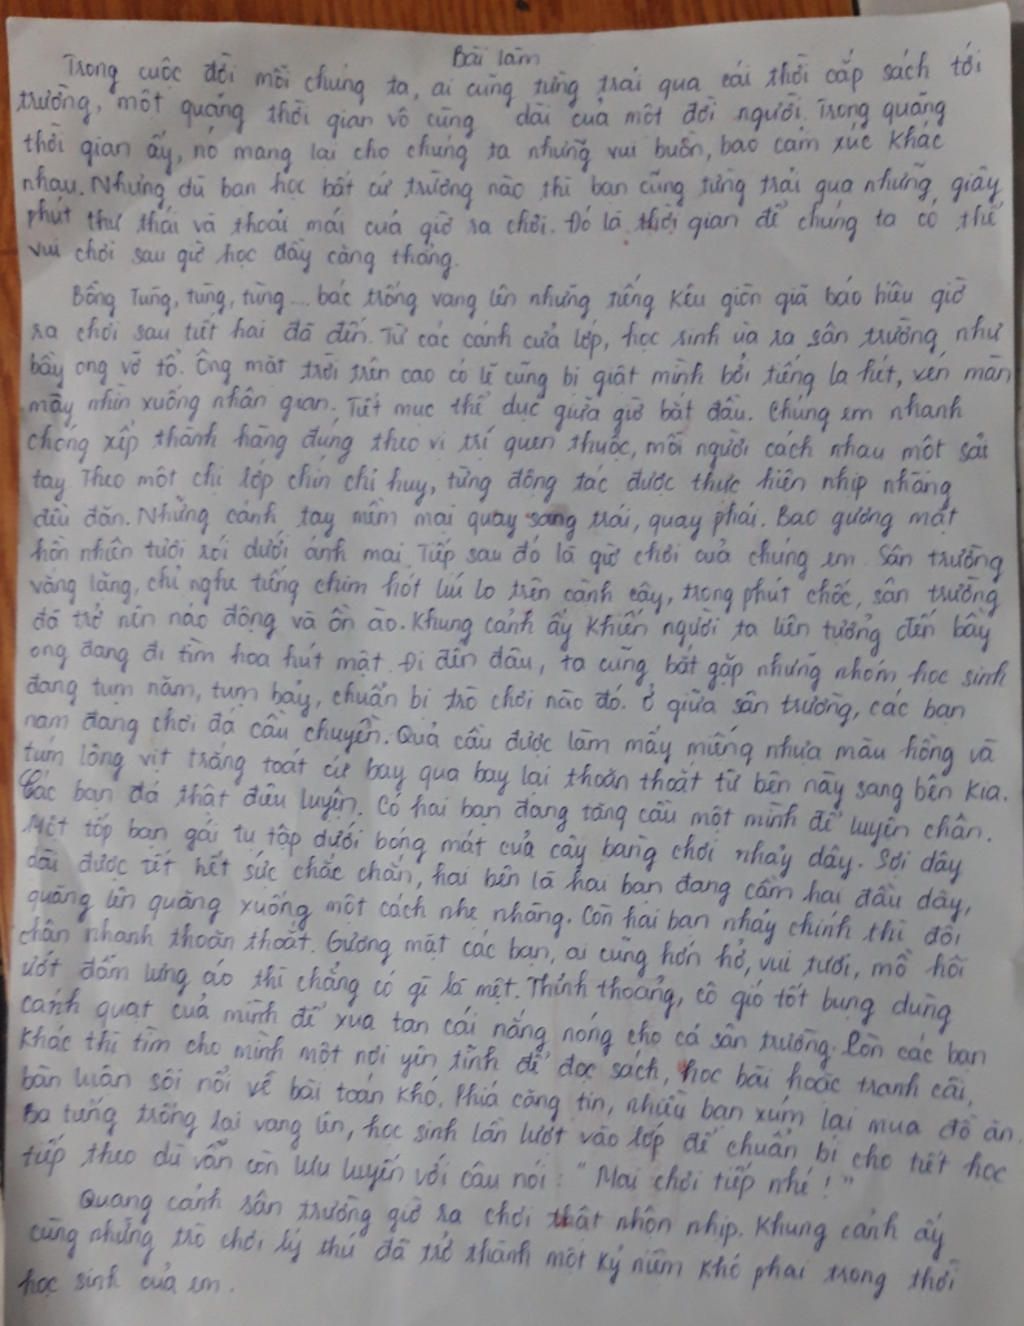 Bài làm
Trong cuộc đời mỗi chúng ta, ai cũng từng trải qua cái thời cắp sách tới
trường, một quãng thời gian vô cùng dài của một đời người. Trong quãng
thời gian ấy, nó mang lại cho chúng ta những vui buồn, bao cảm xúc khác
nhau. Nhưng dù bạn học bất cứ trường nào thì bạn cũng từng trải qua những giây
phút thư thái và thoải mái của giờ ra chơi. Đó là thời gian để chúng ta có thể
vui chơi sau giờ học đầy căng thẳng.
Bỗng Tùng, tùng, tùng... bác trống vang lên những tiếng kêu giòn giã báo hiệu giờ
ra chơi sau tiết hai đã đến. Từ các cánh cửa lớp, học sinh ùa ra sân trường như
bầy ong vỡ tổ. Ông mặt trời trên cao có lẽ cũng bị giật mình bởi tiếng la hét, vén màn
mây nhìn xuống nhân gian. Tiết mục thể dục giữa giờ bắt đầu. Chúng em nhanh
chóng xếp thành hàng đứng theo vị trí quen thuộc, mỗi người cách nhau một sải
tay. Theo một chị lớp chín chỉ huy, từng động tác được thực hiện nhịp nhàng
đều đặn. Những cánh tay mềm mại quay sang trái, quay phải. Bao gương mặt
hồn nhiên tươi rói dưới ánh mai. Tiếp sau đó là giờ chơi của chúng em. Sân trường
vắng lặng, chỉ nghe tiếng chim hót líu lo trên cành cây, trong phút chốc, sân trường
đã trở nên náo động và ồn ào. Khung cảnh ấy khiến người ta liên tưởng đến bầy
ong đang đi tìm hoa hút mật. Đi đến đâu, ta cũng bắt gặp những nhóm học sinh
đang tụm năm, tụm bảy, chuẩn bị trò chơi nào đó. Ở giữa sân trường, các bạn
nam đang chơi đá cầu chuyền. Quả cầu được làm mấy miếng nhựa màu hồng và
túm lông vịt trắng toát cứ bay qua bay lại thoăn thoắt từ bên này sang bên kia.
Các bạn đá thật điêu luyện. Có hai bạn đang tâng cầu một mình để luyện chân.
Một tốp bạn gái tụ tập dưới bóng mát của cây bàng chơi nhảy dây. Sợi dây
dài được tết hết sức chắc chắn, hai bên là hai bạn đang cầm hai đầu dây,
quăng lên quăng xuống một cách nhẹ nhàng. Còn hai bạn nhảy chính thì đôi
chân nhanh thoăn thoắt. Gương mặt các bạn, ai cũng hớn hở, vui tươi, mồ hôi
ướt đẫm lưng áo thì chẳng có gì là mệt. Thỉnh thoảng, cô gió tốt bụng dùng
cánh quạt của mình để xua tan cái nắng nóng cho cả sân trường. Còn các bạn
khác thì tìm cho mình một nơi yên tĩnh để đọc sách, học bài hoặc tranh cãi,
bàn luận sôi nổi về bài toán khó. Phía căng tin, nhiều bạn xúm lại mua đồ ăn.
Ba tiếng trống lại vang lên, học sinh lần lượt vào lớp để chuẩn bị cho tiết học
tiếp theo dù vẫn còn lưu luyến với câu nói: "Mai chơi tiếp nhé!"
Quang cảnh sân trường giờ ra chơi thật nhộn nhịp. Khung cảnh ấy
cùng những trò chơi lý thú đã trở thành một kỷ niệm khó phai trong thời
học sinh của em.